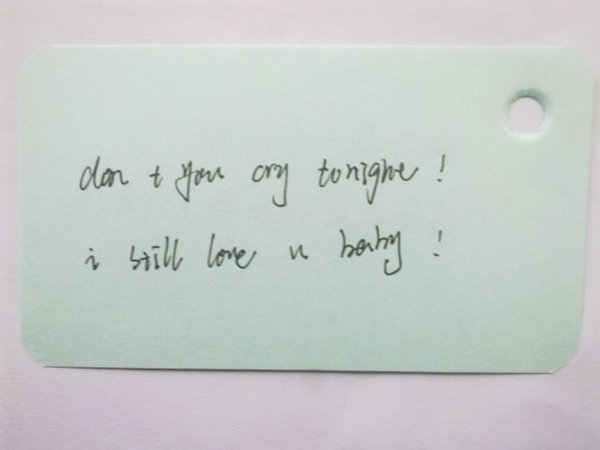 don t you cry tonight !
i still love u baby !